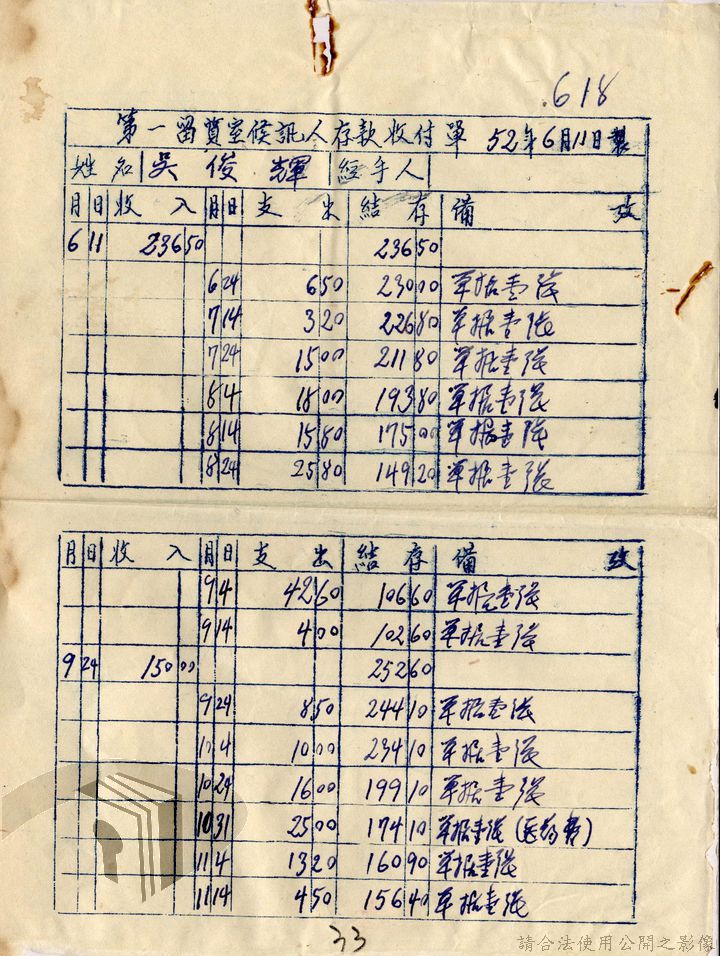 .618
第一留質室候訊人存款收付單 52年6月11日製
姓名 吳俊輝 經手人
月 日 收入 月 日 支出 結存 備攷
6 11 236 50 236 50
6 24 6 50 230 00 單據壹張
7 14 3 20 226 80 單據壹張
7 24 15 00 211 80 單據壹張
8 4 18 00 193 80 單據壹張
8 14 15 80 175 00 單據壹張
8 24 25 80 149 20 單據壹張
月 日 收入 月 日 支出 結存 備攷
9 4 42 60 106 60 單據壹張
9 14 4 00 102 60 單據壹張
9 24 150 00 252 60
9 24 8 50 244 10 單據壹張
10 4 10 00 234 10 單據壹張
10 24 16 00 199 10 單據壹張
10 31 25 00 174 10 單據壹張(医葯費)
11 4 13 20 160 90 單據壹張
11 14 4 50 156 40 單據壹張
33
請合法使用公開之影像